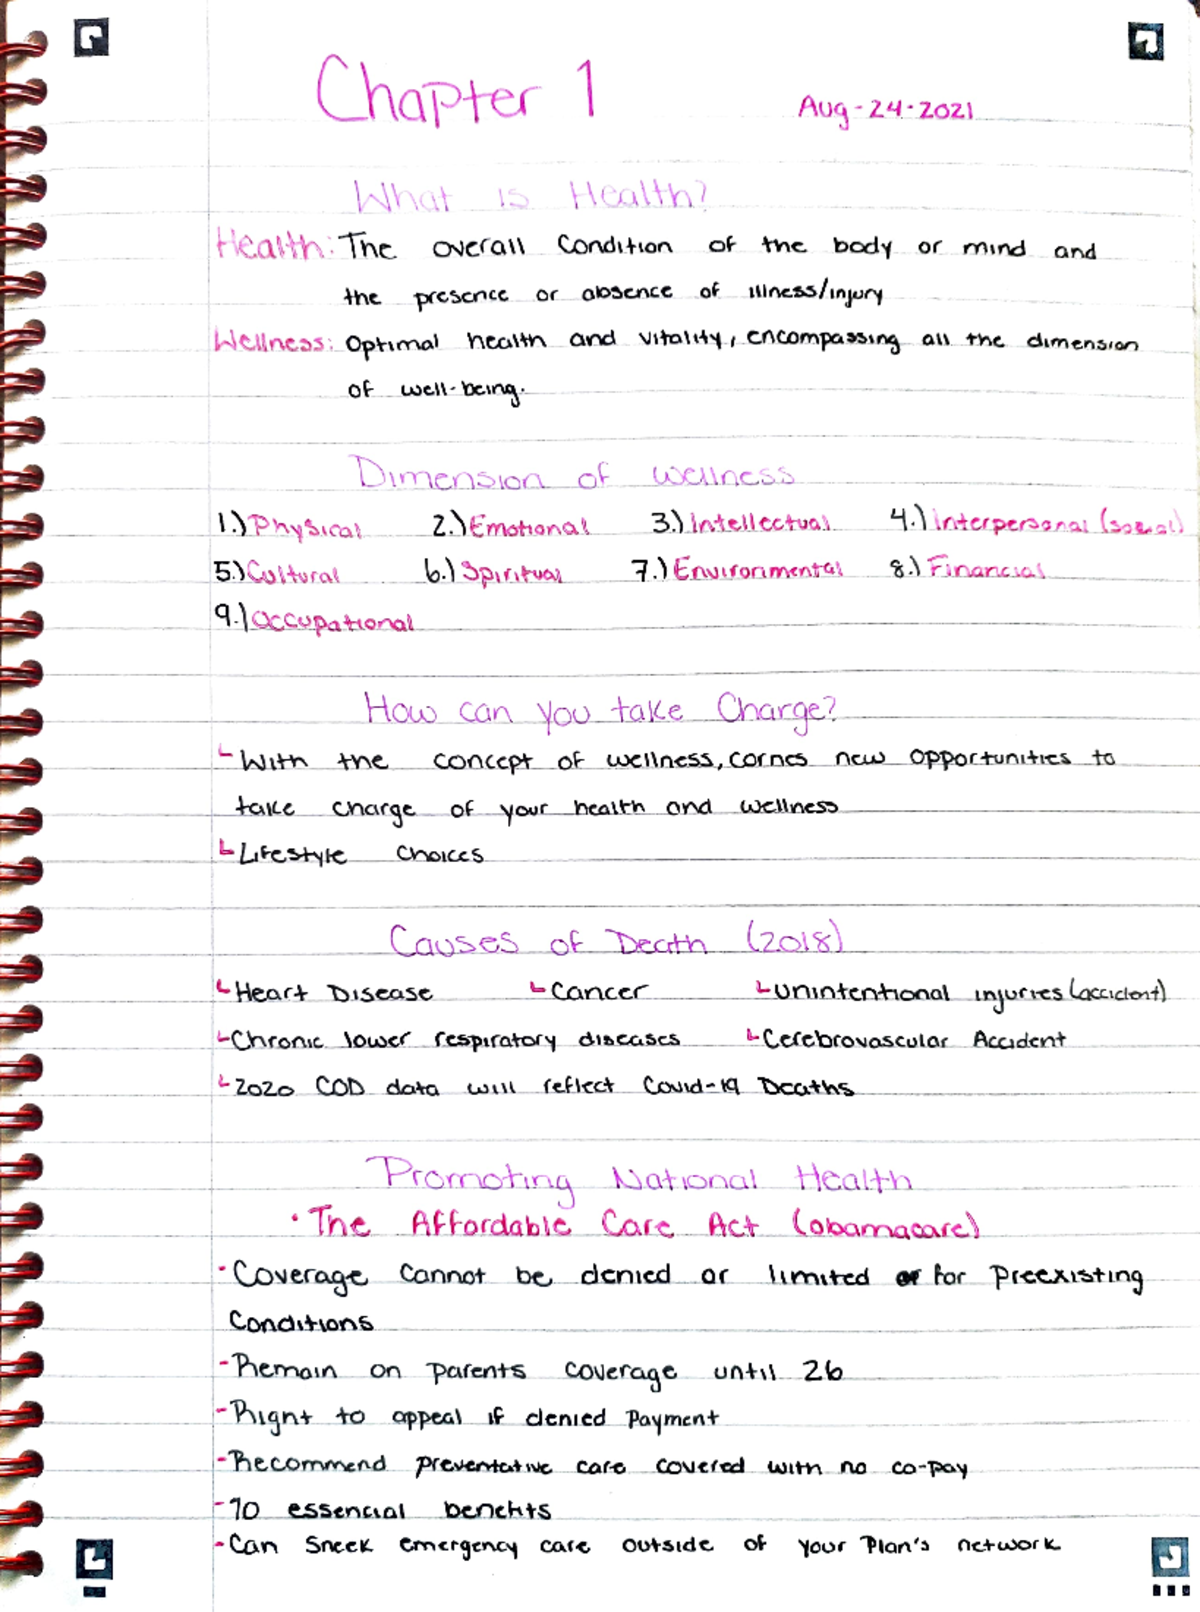 Chapter 1
Aug-24-2021
What is Health?
Health: The overall condition of the body or mind and
the presence or absence of illness/injury
Wellness: Optimal health and vitality, encompassing all the dimension
of well-being.
Dimension of wellness
1.) Physical 2.) Emotional 3.) intellectual 4.) interpersonal (social)
5.) Cultural 6.) Spiritual 7.) Environmental 8.) Financial
9.) Occupational
How can you take Charge?
With the concept of wellness, comes new opportunities to
take charge of your health and wellness
Lifestyle choices
Causes of Death (2018)
Heart Disease Cancer unintentional injuries (accident)
Chronic lower respiratory diseases Cerebrovascular Accident
2020 COD data will reflect Covid-19 Deaths
Promoting National Health
• The Affordable Care Act (obamacare)
• Coverage cannot be denied or limited or for Preexisting
Conditions
- Remain on parents coverage until 26
- Right to appeal if denied Payment
- Recommend preventative care covered with no co-pay
- 10 essencial benefits
- Can Sneek emergency care outside of your Plan's network